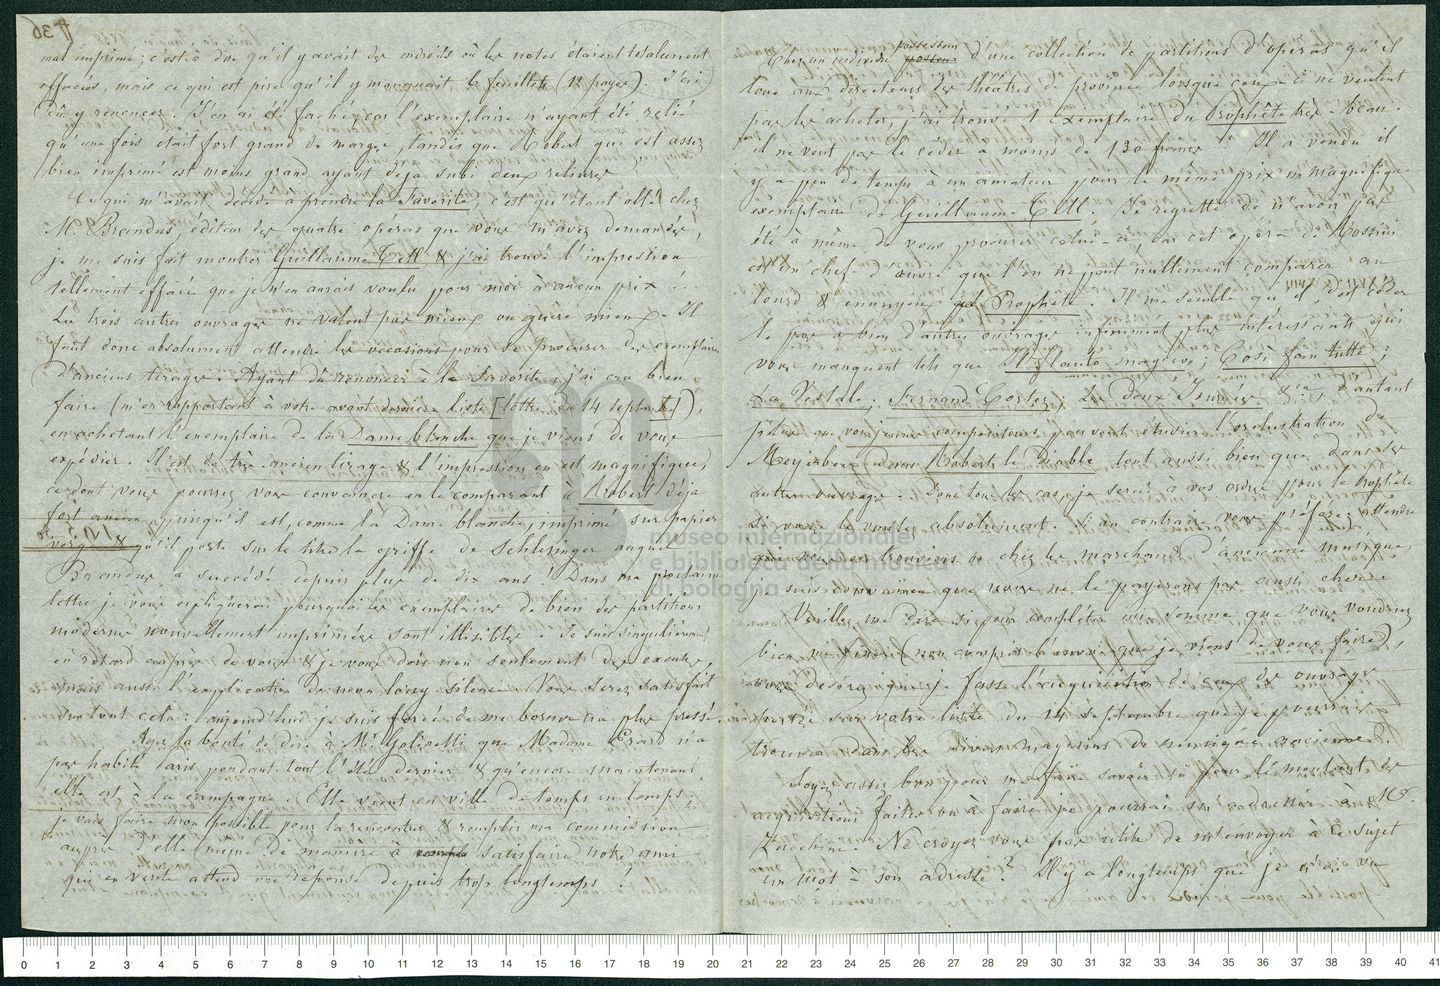 mal imprimé; c'est-à-dire qu'il y avait des endroits où les notes étaient totalement
effacées, mais ce qui est pire qu'il y manquait 6 feuillets (12 pages). J'ai
dû y renoncer. J'en ai été fâché, car l'exemplaire n'ayant été relié
qu'une fois était fort grand de marges, tandis que Robert qui est assez
bien imprimé est moins grand ayant déjà subi deux reliures.
Ce qui m'avait décidé à prendre la Favorite, c'est qu'étant allé chez
M. Brandus, éditeur des quatre opéras que vous m'avez demandés,
je me suis fait montrer Guillaume Tell & j'ai trouvé l'impression
tellement effacée que je n'en aurais voulu pour moi à aucun prix.
Les trois autres ouvrages ne valent pas mieux ou guère mieux. Il
faut donc absolument attendre les occasions pour se procurer des exemplaires
d'anciens tirages. Ayant dû renoncer à la Favorite, j'ai cru bien
faire (m'en rapportant à votre avant dernière liste [lettre du 14 septembre]),
en achetant l'exemplaire de la Dame blanche que je viens de vous
expédier. Il est de très ancien tirage & l'impression en est magnifique,
ce dont vous pourrez vous convaincre en le comparant à Robert déjà
fort ancien, puisqu'il est, comme la Dame blanche, imprimé sur papier
vergé & qu'il porte sur le titre la griffe de Schlesinger auquel
Brandus a succédé depuis plus de dix ans! Dans ma prochaine
lettre je vous expliquerai pourquoi les exemplaires de bien des partitions
modernes nouvellement imprimées sont illisibles. Je suis singulièrement
en retard auprès de vous & je vous dois non seulement des excuses,
mais aussi l'explication de mon long silence. Vous serez satisfait
sur tout cela: aujourd'hui je suis forcé de me borner au plus pressé.
Ayez la bonté de dire à Mr. Golinelli que Madame Erard n'a
pas habité Paris pendant tout l'été dernier & qu'encore maintenant
elle est à la campagne. Elle vient en ville de temps en temps;
je vais faire mon possible pour la rencontrer & remplir ma commission
auprès d'elle même de manière à satisfaire notre ami
qui en vérité attend une réponse depuis trop longtemps.
Chez un individu possesseur d'une collection de partitions d'opéras qu'il
loue aux directeurs des théâtres de province lorsque ceux-ci ne veulent
pas les acheter, j'ai trouvé 1 exemplaire du Prophète très beau.
il ne veut pas le céder à moins de 130 francs!! Il a vendu il
y a peu de temps à un amateur pour le même prix un magnifique
exemplaire de Guillaume Tell. Je regrette de n'avoir pas
été à même de vous procurer celui-ci, car cet opéra de Rossini
est un chef d'œuvre que l'on ne peut nullement comparer au
lourd & ennuyeux Prophète. Il me semble qu'il doit céder
le pas à bien d'autres ouvrages infiniment plus intéressants qui
vous manquent tels que Il Flauto magico; Così fan tutte;
La Vestale; Fernand Cortez; Les Deux Journées & ca d'autant
plus que vos jeunes compositeurs peuvent étudier l'orchestration de
Meyerbeer dans Robert le Diable tout aussi bien que dans ses
autres ouvrages. Dans tous les cas, je serai à vos ordres pour le Prophète
si vous le voulez absolument. Si au contraire vous préférez attendre
que nous en trouvions un chez les marchands d'ancienne musique,
je suis convaincu que nous ne le payerons pas aussi cher.
Veuillez me dire si pour compléter la somme que vous voudrez
bien (non compris l'envoi que je viens de vous faire),
vous désirez que je fasse l'acquisition de ceux des ouvrages
portés sur votre liste du 14 septembre que je pourrai
trouver dans les divers magasins de musique ancienne.
Soyez assez bon pour me faire savoir si pour le montant des
acquisitions faites ou à faire je pourrai m'adresser à Mr.
Zucchini. Ne croyez-vous pas utile de m'envoyer à ce sujet
un mot à son adresse? Il y a longtemps que je n'ai vu
museo internazionale
e biblioteca della musica
di bologna
0 1 2 3 4 5 6 7 8 9 10 11 12 13 14 15 16 17 18 19 20 21 22 23 24 25 26 27 28 29 30 31 32 33 34 35 36 37 38 39 40 41